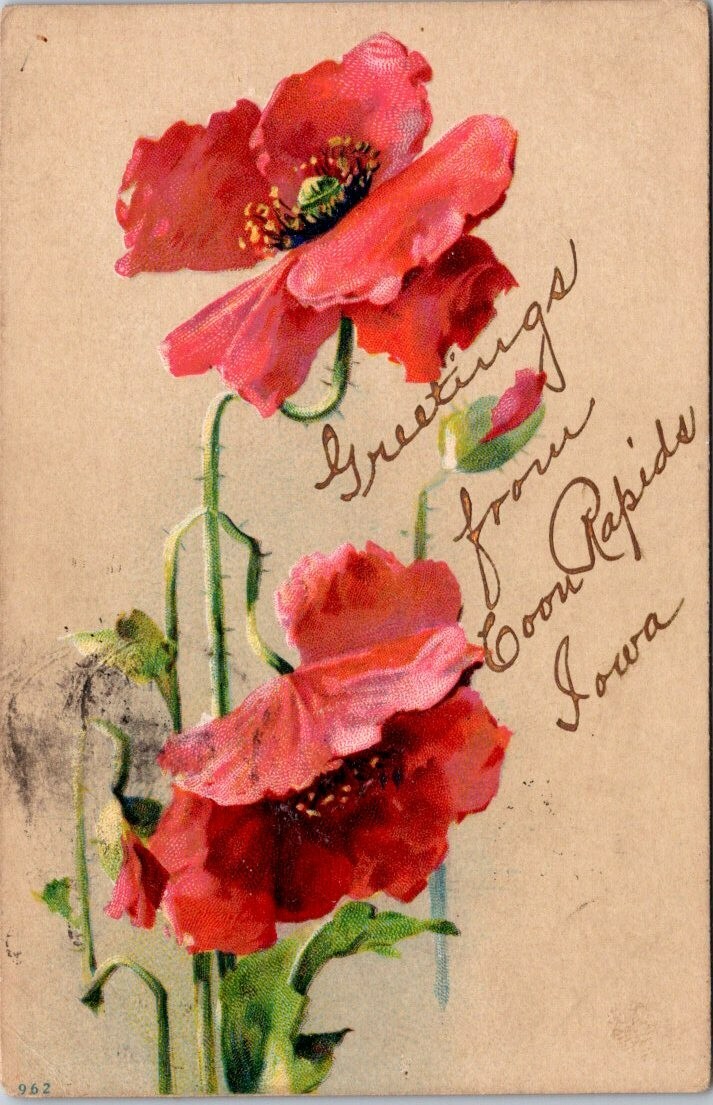 Greetings
from
Coon Rapids
Iowa
962